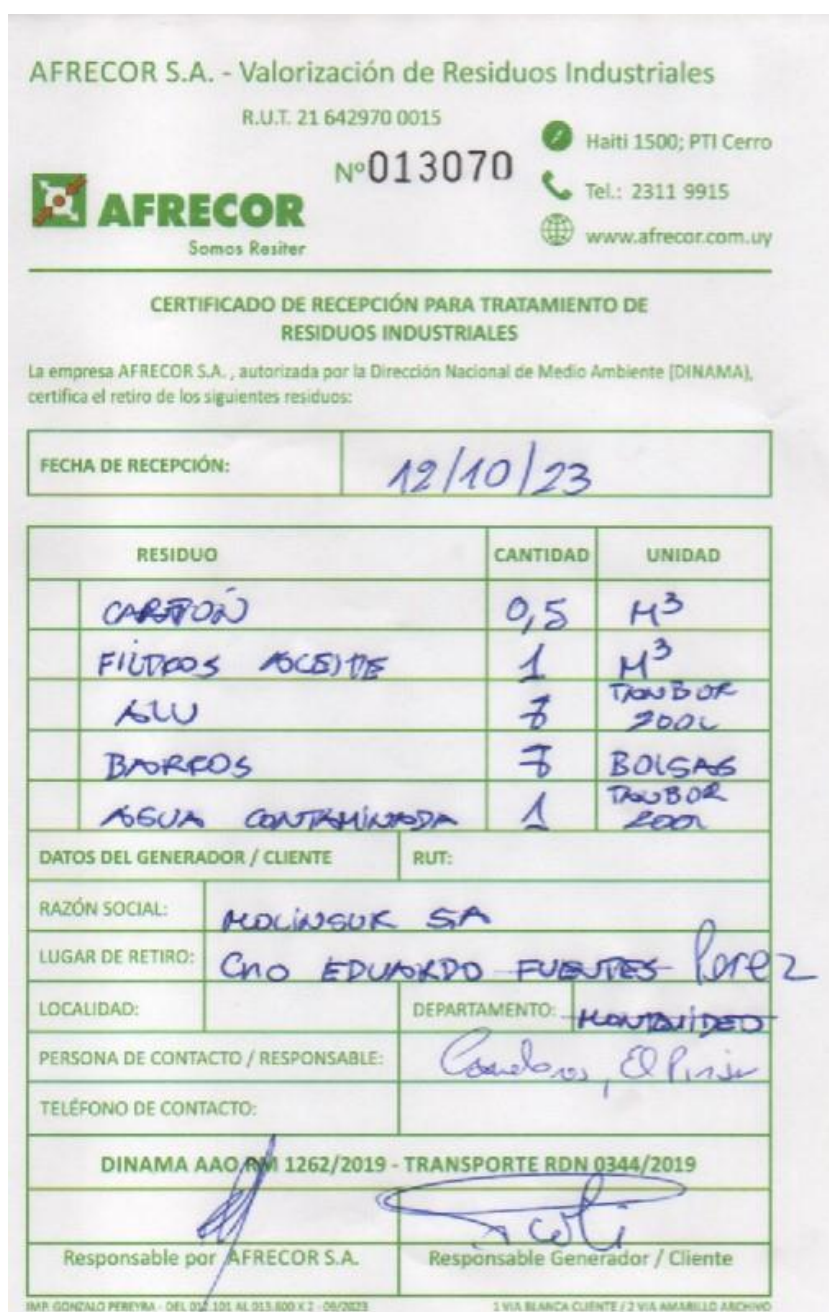 AFRECOR S.A. - Valorización de Residuos Industriales
R.U.T. 21 642970 0015
Haiti 1500; PTI Cerro
Nº013070
Tel.: 2311 9915
AFRECOR
Somos Resiter
www.afrecor.com.uy
CERTIFICADO DE RECEPCIÓN PARA TRATAMIENTO DE
RESIDUOS INDUSTRIALES
La empresa AFRECOR S.A. , autorizada por la Dirección Nacional de Medio Ambiente (DINAMA),
certifica el retiro de los siguientes residuos:
FECHA DE RECEPCIÓN: 12/10/23
RESIDUO CANTIDAD UNIDAD
CARTÓN 0,5 M³
FILTROS ACEITE 1 M³
ALU 7 TAMBOR 200L
BARROS 7 BOLSAS
AGUA CONTAMINADA 1 TAMBOR 200L
DATOS DEL GENERADOR / CLIENTE RUT:
RAZÓN SOCIAL: MOLINSUR SA
LUGAR DE RETIRO: Cno EDUARDO FUENTES Perez
LOCALIDAD: DEPARTAMENTO: MONTEVIDEO
PERSONA DE CONTACTO / RESPONSABLE: Canelones, El Pinar
TELÉFONO DE CONTACTO:
DINAMA AAO RM 1262/2019 - TRANSPORTE RDN 0344/2019
Responsable por AFRECOR S.A. Responsable Generador / Cliente
IMP. GONZALO PEREYRA - DEL 012.101 AL 013.600 X 2 - 09/2023 1 VIA BLANCA CLIENTE / 2 VIA AMARILLO ARCHIVO